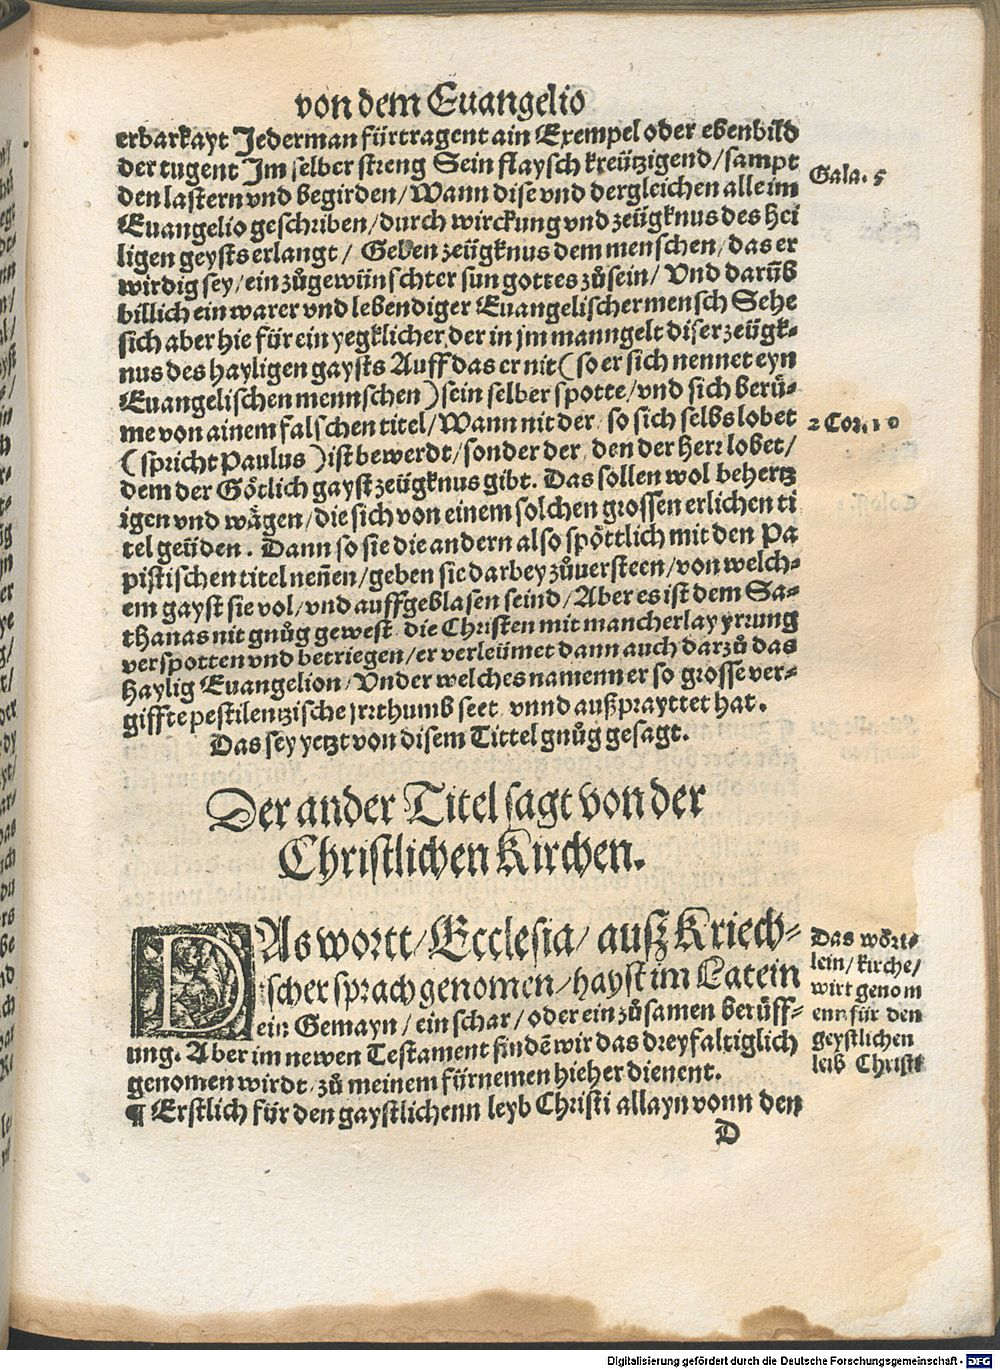 von dem Euangelio
erbarkayt Jederman fürtragent ain Exempel oder ebenbild
der tugent Im selber streng Sein flaysch kreützigend/sampt
den lastern vnd begirden/Wann dise vnd dergleichen alle im
Gala. 5
Euangelio geschriben/durch wirckung vnd zeügknus des hei
ligen geysts erlangt/ Geben zeügknus dem menschen/das er
wirdig sey/ein zůgewünschter sun gottes zůsein/ Vnd darüb
billich ein warer vnd lebendiger Euangelischer mensch Sehe
sich aber hie für ein yegklicher der in jm manngelt diser zeügk⸗
nus des hayligen gaysts Auff das er nit (so er sich nennet eyn
Euangelischen mennschen) sein selber spotte/vnd sich berü⸗
me von ainem falschen titel/Wann nit der so sich selbs lobet
2 Cor. 10
(spricht Paulus) ist bewerdt/sonder der den der herr lobet/
dem der Götlich gayst zeügknus gibt. Das sollen wol behertz
igen vnd wägen/die sich von einem solchen grossen erlichen ti
tel geüden. Dann so sie die andern also spöttlich mit den Pa
pistischen titel neñen/geben sie darbey zůuersteen/von welch⸗
em gayst sie vol/vnd auffgeblasen seind/Aber es ist dem Sa⸗
thanas nit gnůg gewest die Christen mit mancherlay yrrung
verspotten vnd betriegen/er verleümet dann auch darzů das
haylig Euangelion/Vnder welches namenn er so grosse ver⸗
giffte pestilentzische jrrthumb seet vnnd außprayttet hat.
Das sey yetzt von disem Tittel gnůg gesagt.
Der ander Titel sagt von der
Christlichen Kirchen.
DAs wortt/Ecclesia/ außz Kriech⸗
ischer sprach genomen/hayst im Latein
ein Gemayn/ein schar/oder ein zůsamen berüff⸗
ung. Aber im newen Testament findẽ wir das dreyfaltiglich
genomen wirdt zů meinem fürnemen hieher dienent.
¶ Erstlich für den gaystlichenn leyb Christi allayn vonn den
Das wört⸗
lein/kirche/
wirt genom
enn für den
geystlichen
leib Christi
D
Digitalisierung gefördert durch die Deutsche Forschungsgemeinschaft - DFG